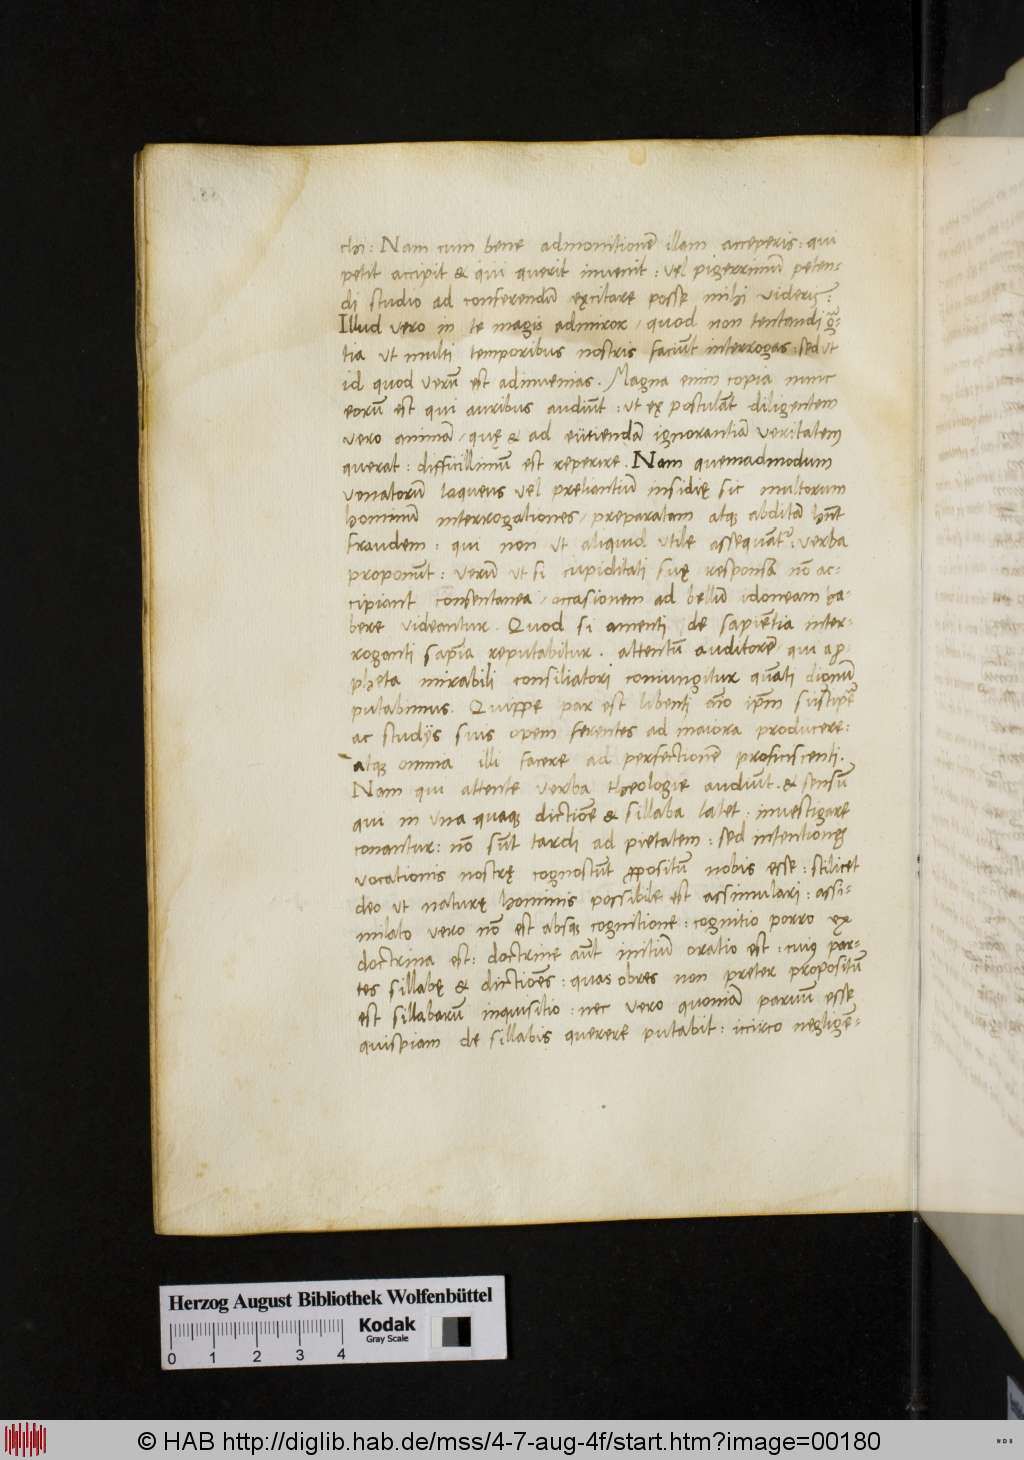 chi: Nam cum bene admonitionē illam acceperis: qui
petit accipit & qui querit invenit: vel pigerrimū peten-
di studio ad conferendū excitare posse mihi videris:
Illud vero in te magis admiror, quod non tentandi grā-
tia ut multi temporibus nostris faciūt interrogas: sed ut
id quod verū est adinvenias. Magna enim copia nunc
eorū est qui auribus audiūt: ut ex postulāt diligentem
vero animā, quę & ad ignorantiā veritatem
querat: difficillimū est reperire. Nam quemadmodum
venatorū laqueus vel preliantiū insidię sic multorum
hominū interrogationes, preparatam atq; abditā hn̄t
fraudem: qui non ut aliquid utile assequant᷑: verba
proponūt: verū ut si cupiditati suę responsa nō ac-
cipiant consentanea, occasionem ad bellū idoneam ha-
bere videantur. Quod si amenti de sapiētia inter-
roganti sap̄ia reputabitur. attentū auditorē, qui a p̄ro-
pheta mirabili consiliatori coniungitur quāti dignū
putabimus. Quippe par est libenti aīo ip̄m suscipe
ac studijs suis opem ferentes ad maiora producere:
atq; omnia illi facere ad perfectionē proficiscenti.
Nam qui attente verba theologie audiūt, & sensū
qui in una quaq; dictiōe & sillaba latet, investigare
conantur: nō sūt tardi ad pietatem: sed intentiones
vocationis nostrę cognoscūt propositū nobis esse: scilicet
deo ut naturę hominis possibile est assimulari: assi-
milatio vero nō est absq; cognitione: cognitio porro ex
doctrina est: doctrine aūt initiū oratio est: cuiꝯ par-
tes sillabę & dictiōes: quas obres non preter propositū
est sillabarū inquisitio: nec vero quoniā parvū esse
quispiam de sillabis querere putabit: iccirco negligē-
Herzog August Bibliothek Wolfenbüttel
Kodak
Gray Scale
0 1 2 3 4
© HAB http://diglib.hab.de/mss/4-7-aug-4f/start.htm?image=00180